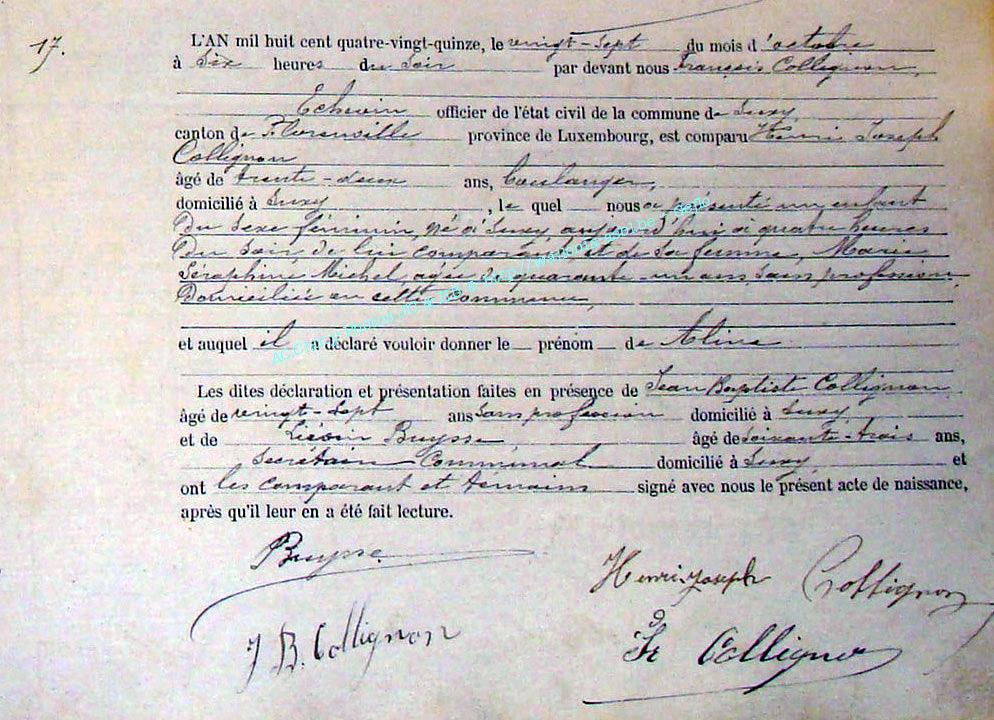 17.
L'AN mil huit cent quatre-vingt-quinze, le vingt-sept du mois d'octobre
à six heures du soir par devant nous François Collignon,
Echevin officier de l'état civil de la commune de Suxy,
canton de Florenville province de Luxembourg, est comparu Henri Joseph
Collignon
âgé de trente-deux ans, boulanger,
domicilié à Suxy, le quel nous a présenté un enfant
du sexe féminin, né à Suxy, aujourd'hui à quatre heures
du soir, de lui comparant et de sa femme, Marie
Séraphine Michel, agée de quarante-un ans, sans profession,
domiciliée en cette commune,
et auquel il a déclaré vouloir donner le prénom de Aline
Les dites déclaration et présentation faites en présence de Jean Baptiste Collignon
âgé de vingt-sept ans sans profession domicilié à Suxy
et de Buysse âgé de soixante-trois ans,
secrétaire communal domicilié à Suxy, et
ont les comparant et témoins signé avec nous le présent acte de naissance,
après qu'il leur en a été fait lecture.
Buysse
Henri Joseph Collignon
J B. Collignon
Fr Collignon